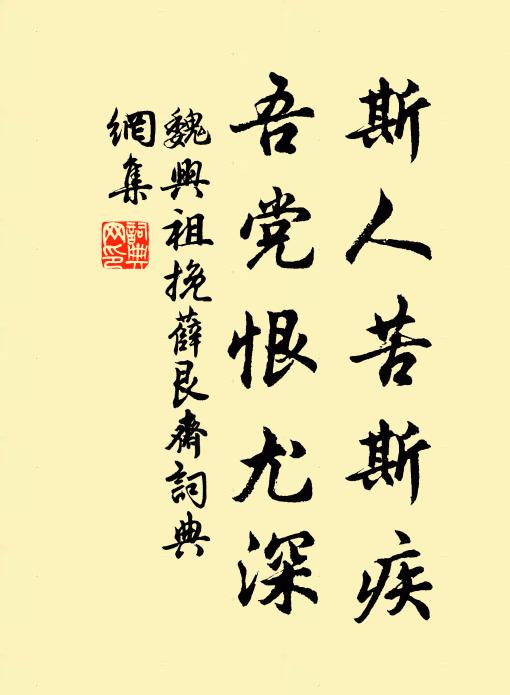 斯人苦斯疾
吾党恨尤深
魏興祖挽薛艮齋詞典
網集
詞典
网印